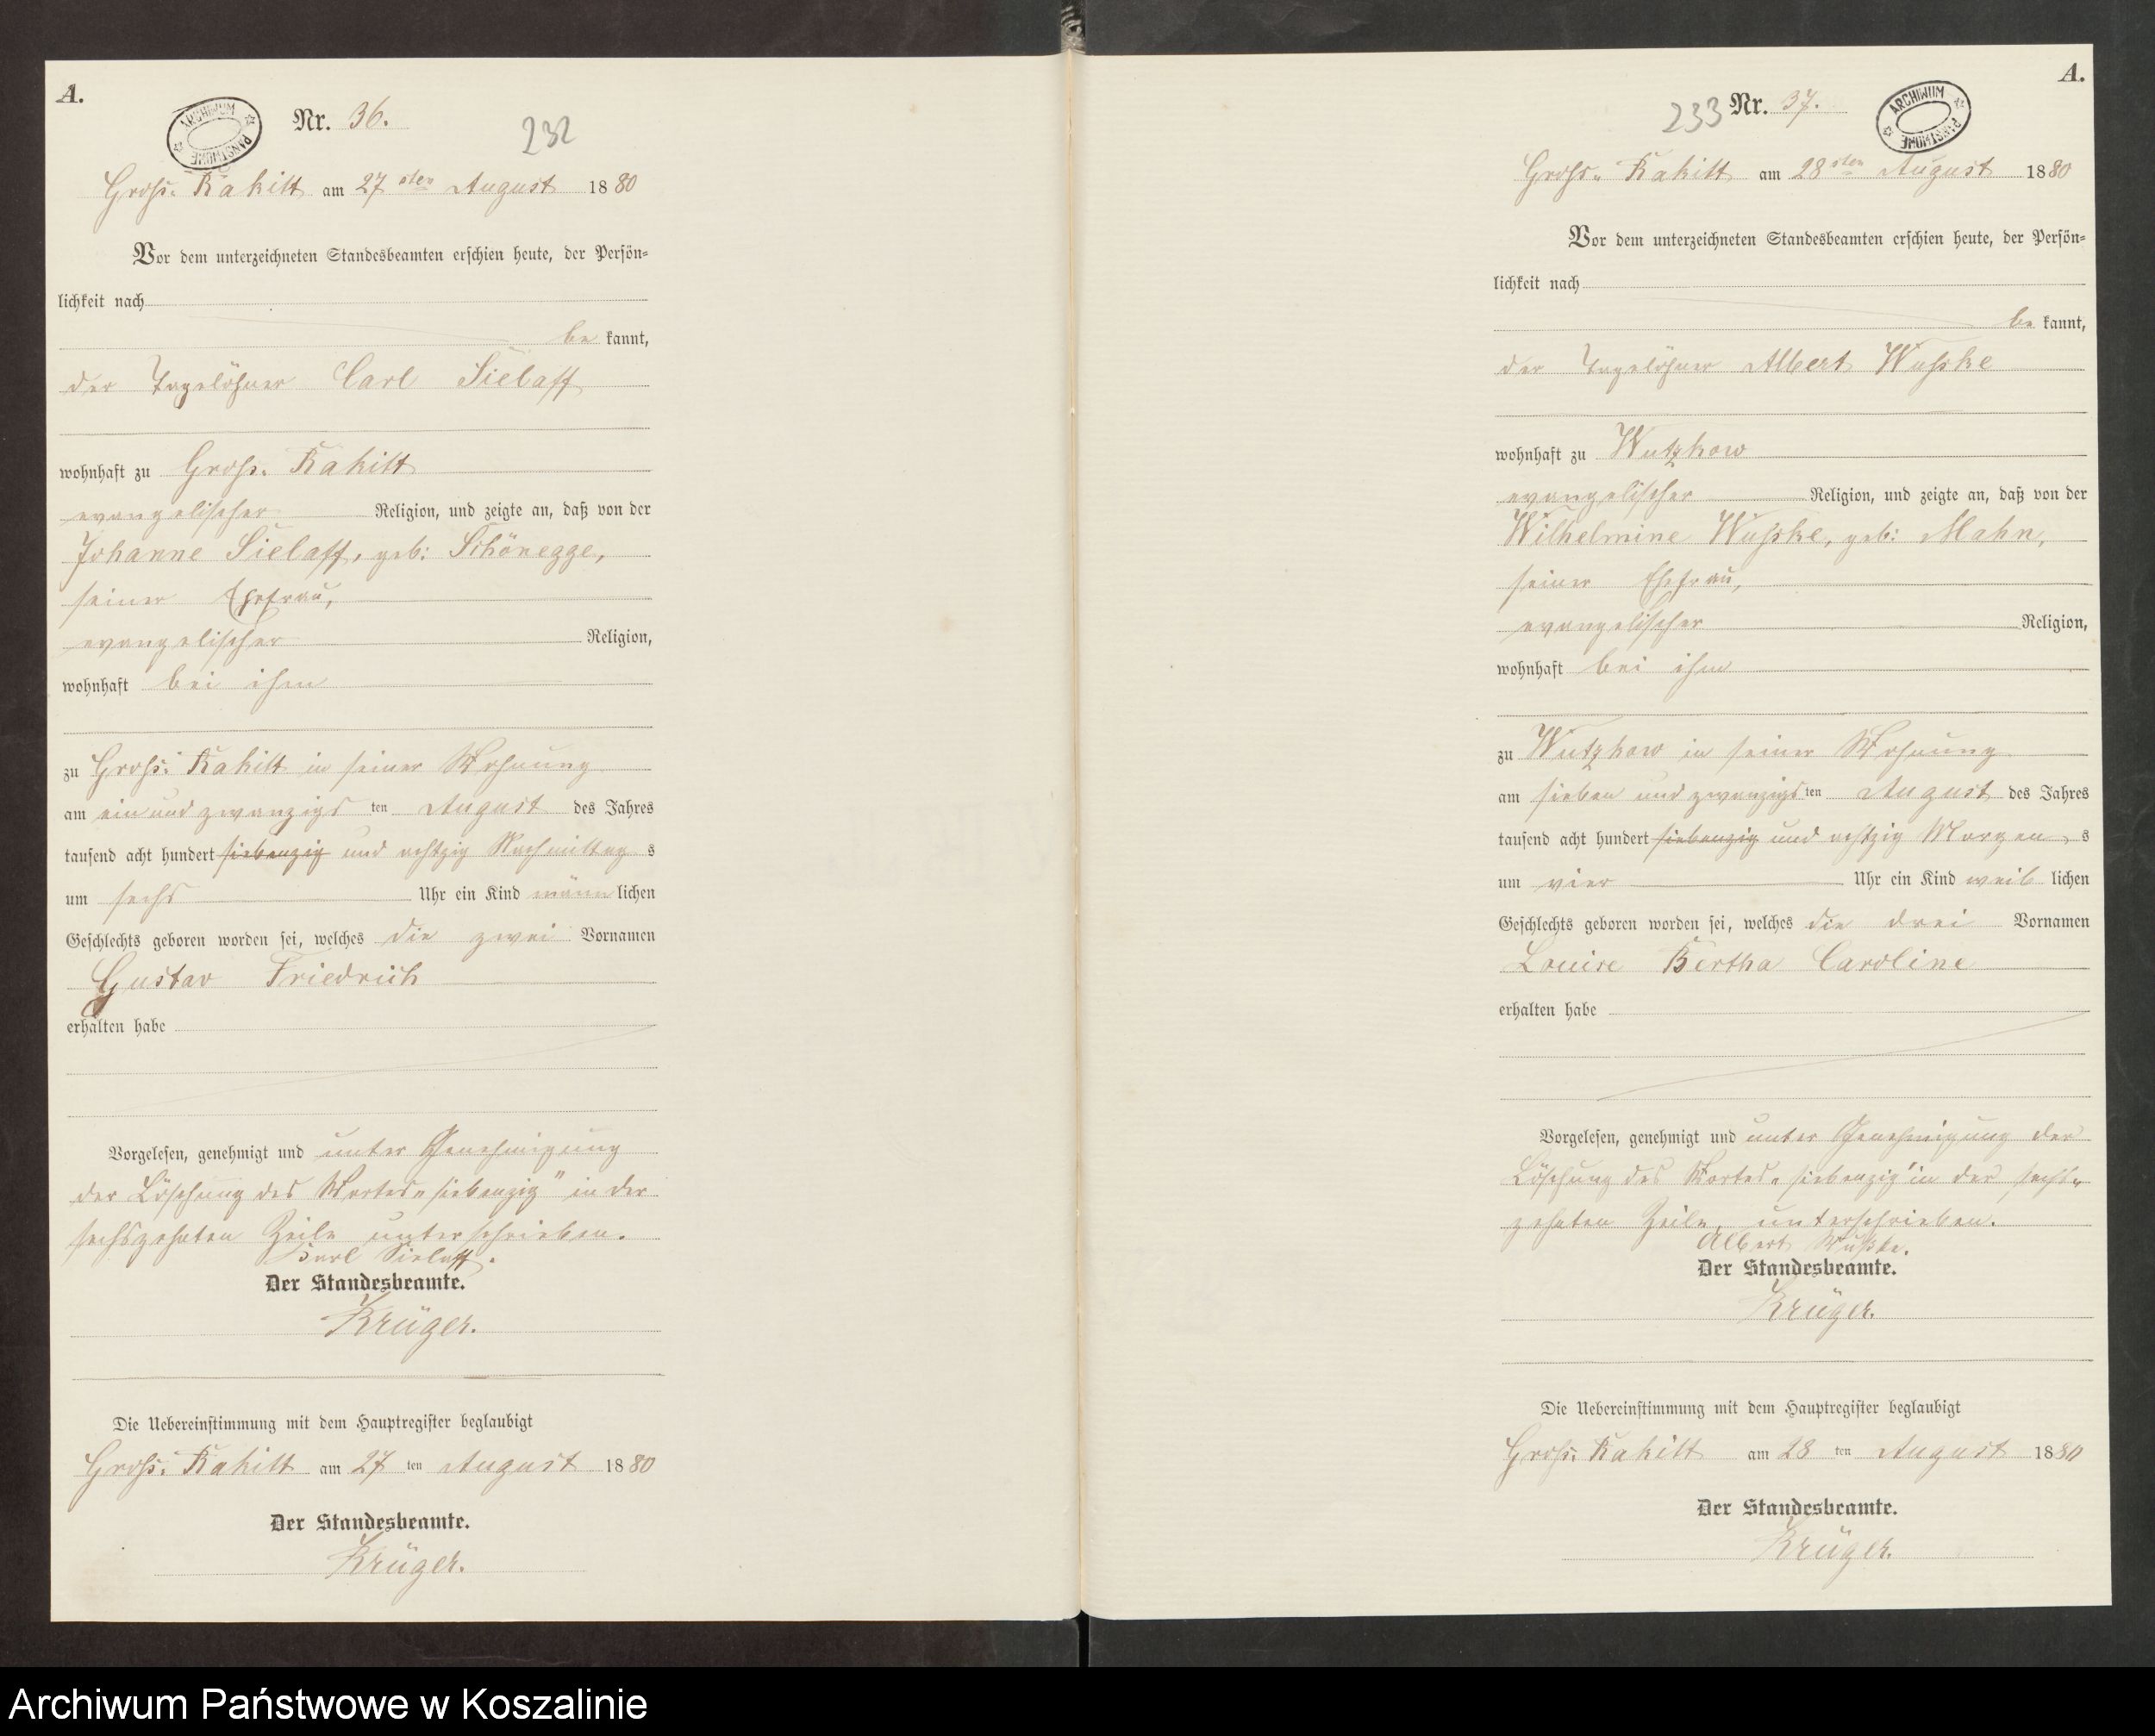 A.
ARCHIWUM PAŃSTWOWE
Nr. 36.
232
Groß. Rakitt am 27 sten August 1880
Vor dem unterzeichneten Standesbeamten erschien heute, der Persön=
lichkeit nach
be kannt,
der Tagelöhner Carl Sielaff
wohnhaft zu Groß. Rakitt
evangelischer Religion, und zeigte an, daß von der
Johanne Sielaff, geb: Schönegge,
seiner Ehefrau,
evangelischer Religion,
wohnhaft bei ihm
zu Groß: Rakitt in seiner Wohnung
am ein und zwanzigs ten August des Jahres
tausend acht hundert siebenzig und achtzig Nachmittag s
um sechs Uhr ein Kind männ lichen
Geschlechts geboren worden sei, welches die zwei Vornamen
Gustav Friedrich
erhalten habe
Vorgelesen, genehmigt und unter Genehmigung
der Löschung des Wortes „siebenzig" in der
sechszehnten Zeile unterschrieben.
Karl Sielaff.
Der Standesbeamte.
Krüger.
Die Uebereinstimmung mit dem Hauptregister beglaubigt
Groß: Rakitt am 27 ten August 1880
Der Standesbeamte.
Krüger.
A.
233 Nr. 37.
ARCHIWUM PAŃSTWOWE
Groß„ Rakitt am 28 sten August 1880
Vor dem unterzeichneten Standesbeamten erschien heute, der Persön=
lichkeit nach
be kannt,
der Tagelöhner Albert Wußke
wohnhaft zu Wutzkow
evangelischer Religion, und zeigte an, daß von der
Wilhelmine Wußke, geb: Mahn,
seiner Ehefrau,
evangelischer Religion,
wohnhaft bei ihm
zu Wutzkow in seiner Wohnung
am sieben und zwanzigs ten August des Jahres
tausend acht hundert siebenzig und achtzig Morgen s
um vier Uhr ein Kind weib lichen
Geschlechts geboren worden sei, welches die drei Vornamen
Louise Bertha Caroline
erhalten habe
Vorgelesen, genehmigt und unter Genehmigung der
Löschung des Wortes „siebenzig" in der sechs„
zehnten Zeile, unterschrieben.
Albert Wußke.
Der Standesbeamte.
Krüger.
Die Uebereinstimmung mit dem Hauptregister beglaubigt
Groß: Rakitt am 28 ten August 1880
Der Standesbeamte.
Krüger.
Archiwum Państwowe w Koszalinie